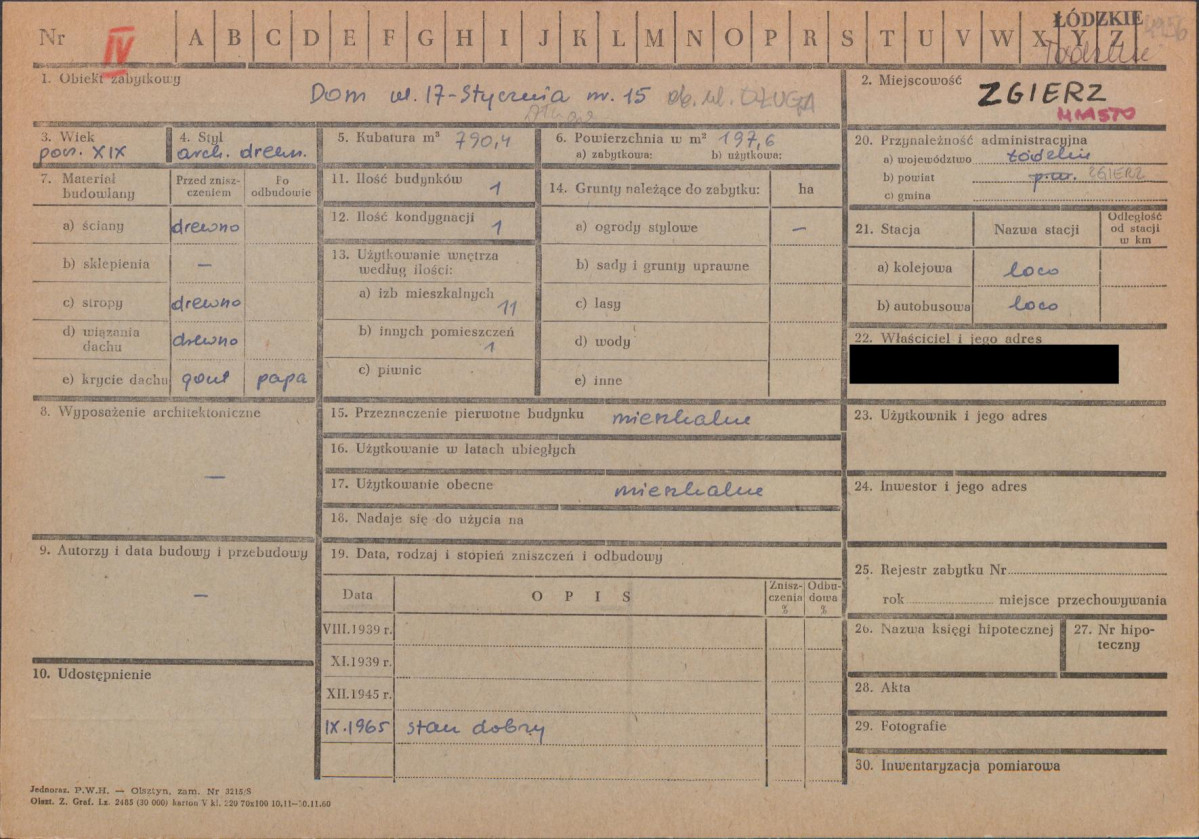 Nr IV A B C D E F G H I J K L M N O P R S T U V W X Y Z
ŁÓDZKIE
1. Obiekt zabytkowy
Dom ul. 17-Stycznia nr. 15 ob. ul. DŁUGA
Długa
2. Miejscowość
ZGIERZ
MIASTO
3. Wiek
poł. XIX
4. Styl
arch. drewn.
5. Kubatura m³ 790,4
6. Powierzchnia w m² 197,6
a) zabytkowa: b) użytkowa:
7. Materiał budowlany
Przed zniszczeniem
Po odbudowie
a) ściany drewno
b) sklepienia —
c) stropy drewno
d) wiązania dachu drewno
e) krycie dachu gont papa
8. Wyposażenie architektoniczne
—
9. Autorzy i data budowy i przebudowy
—
10. Udostępnienie
11. Ilość budynków 1
12. Ilość kondygnacji 1
13. Użytkowanie wnętrza
według ilości:
a) izb mieszkalnych
11
b) innych pomieszczeń
1
c) piwnic
14. Grunty należące do zabytku: ha
a) ogrody stylowe —
b) sady i grunty uprawne
c) lasy
d) wody
e) inne
15. Przeznaczenie pierwotne budynku mieszkalne
16. Użytkowanie w latach ubiegłych
17. Użytkowanie obecne mieszkalne
18. Nadaje się do użycia na
19. Data, rodzaj i stopień zniszczeń i odbudowy
Data OPIS Zniszczenia % Odbudowa %
VIII.1939 r.
XI.1939 r.
XII.1945 r.
IX.1965 stan dobry
20. Przynależność administracyjna
a) województwo łódzkie
b) powiat ZGIERZ
c) gmina
21. Stacja Nazwa stacji Odległość od stacji w km
a) kolejowa loco
b) autobusowa loco
22. Właściciel i jego adres
23. Użytkownik i jego adres
24. Inwestor i jego adres
25. Rejestr zabytku Nr
rok miejsce przechowywania
26. Nazwa księgi hipotecznej
27. Nr hipoteczny
28. Akta
29. Fotografie
30. Inwentaryzacja pomiarowa
Jednoraz. P.W.H. — Olsztyn, zam. Nr 3215/S
Olszt. Z. Graf. Lz. 2485 (30 000) karton V kl. 220 70x100